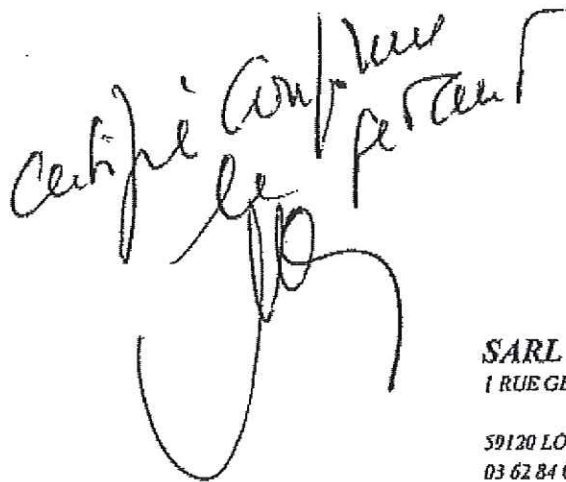 Certifié Conforme
le gérant
SARL
1 RUE GE
59120 LO
03 62 84